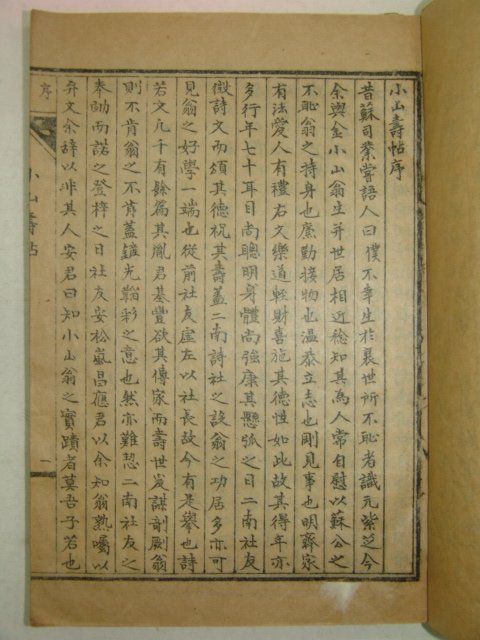 小山壽帖序
昔蘇司業嘗語人曰僕不幸生於衰世所不恥者識元紫芝今
余與金小山翁生幷世居相近稔知其爲人常自慰以蘇公之
不恥翁之持身也廉勤接物也溫恭立志也剛見事也明齊家
有法愛人有禮右文樂道輕財喜施其德性如此故其得年亦
多行年七十耳目尚聰明身體尚强康其懸弧之日二南社友
儆詩文而頌其德祝其壽盖二南詩社之設翁之功居多亦可
見翁之好學一端也從前社友虛左以社長故今有是擧也詩
若文凡千有餘篇其胤君基豐欲其傳家而壽世爰謀剞劂翁
則不肯翁之不肯盖鏟光韜彩之意也然亦難恝二南社友之
奉勍而諾之登梓之日社友安松嵐昌應君以余知翁熟囑以
弁文余辭以非其人安君曰知小山翁之實蹟者莫吾子若也
序
小山壽帖
一